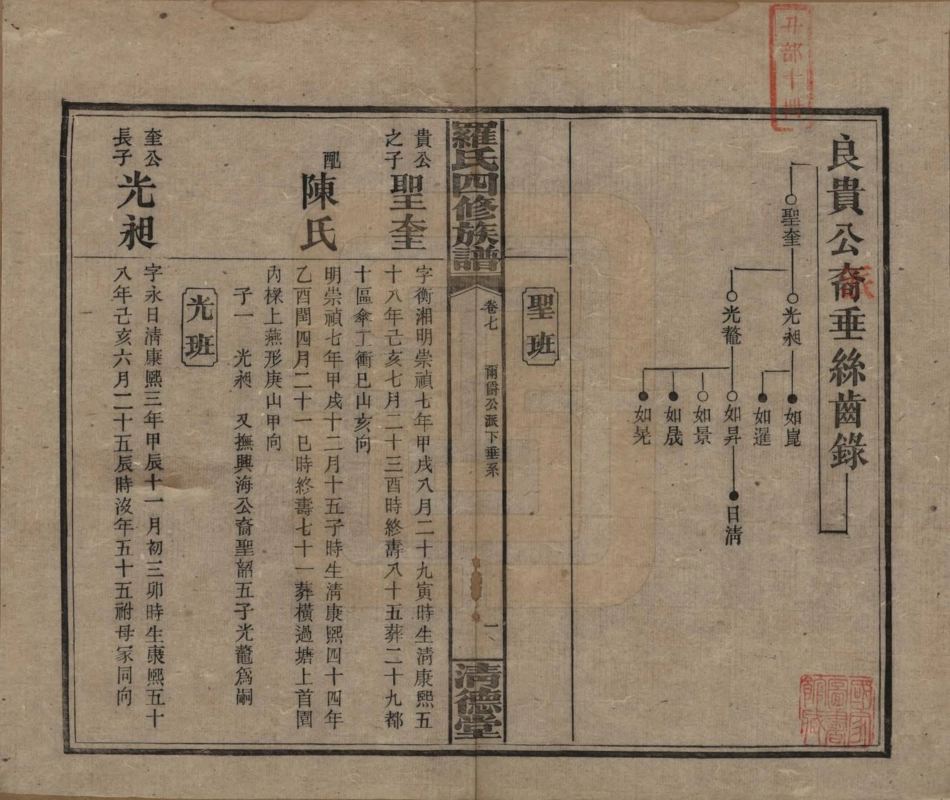 良貴公裔垂絲齒錄
派
聖奎
光昶
光鼇
如崑
如暹
如昇
如景
如晟
如晃
日清
聖班
羅氏四修族譜
卷七
爾爵公派下垂系
一
清德堂
貴公之子
聖奎
字衡湘明崇禎七年甲戌八月二十九寅時生清康熙五
十八年己亥七月二十三酉時終壽八十五葬二十九都
十區傘工衝巳山亥向
配
陳氏
明崇禎七年甲戌十二月十五子時生清康熙四十四年
乙酉閏四月二十一巳時終壽七十一葬橫過塘上首園
內樑上燕形庚山甲向
子一 光昶 又撫興海公裔聖韶五子光鼇為嗣
光班
奎公長子
光昶
字永日清康熙三年甲辰十一月初三卯時生康熙五十
八年己亥六月二十五辰時沒年五十五祔母冢同向